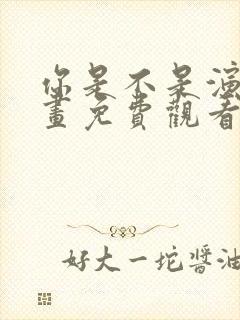 你是不是演
畫免費觀看
好大一坨醬油